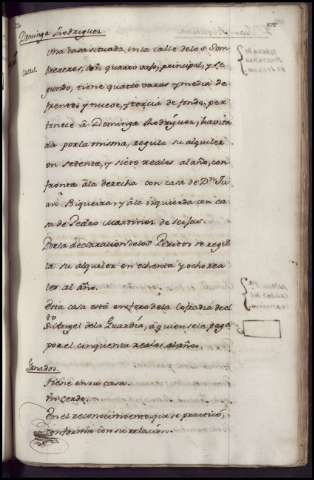 Dominga Rodriguez
Una casa situada, en la calle de los Som
brereros, con quarto vajo, principal, y se
gundo, tiene quatro varas y media de
frente, y nueve, y tercia de fondo, per
tenece à Dominga Rodriguez, havita
da por la misma, regula su alquiler
en setenta, y siete reales al año, con
fronta à la derecha con casa de Dn. Jua
n Biqueira, y à la izquierda con ca
sa de Pedro Martinez de Seijas.
Por la declaracion de los Peritos se regula
su alquiler en ochenta y ocho rea
les al año.
Esta casa està en fuero de la Cofradia del
Sto. Angel de la Guardia, à quien se le paga
por el cinquenta reales al año.
Ganados.
Tiene en su casa.
Un Cerdo.
En el reconocimiento, que se practicò,
conforma con su relacion.